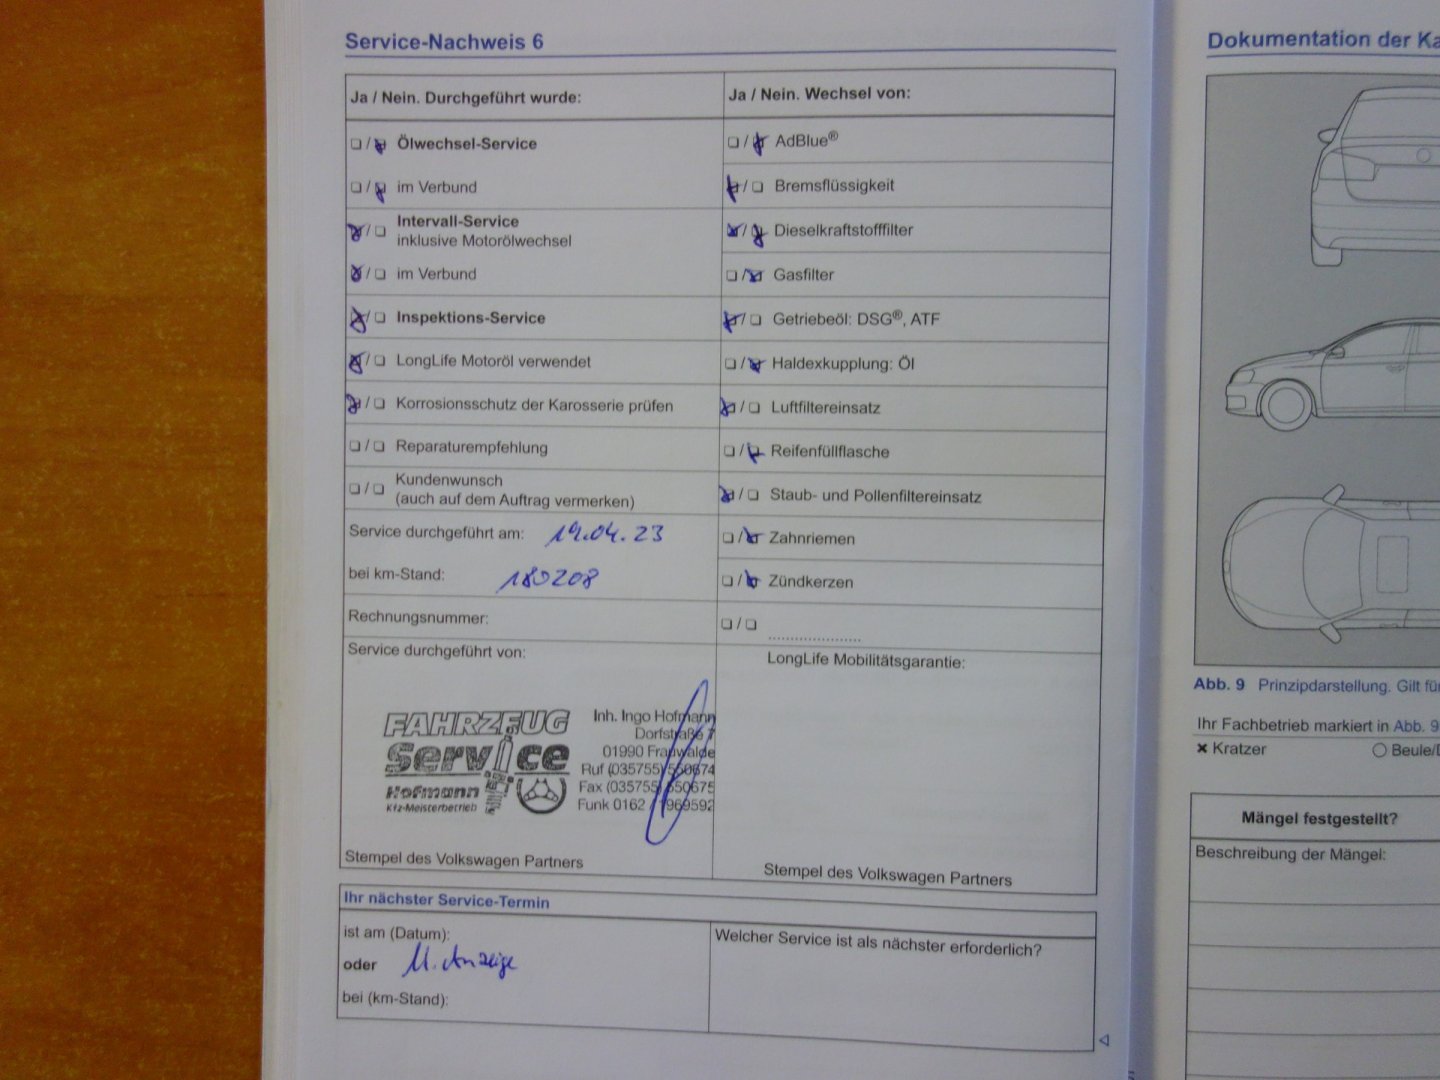 Service-Nachweis 6
Ja / Nein. Durchgeführt wurde:
Ölwechsel-Service
im Verbund
Intervall-Service
inklusive Motorölwechsel
im Verbund
Inspektions-Service
LongLife Motoröl verwendet
Korrosionsschutz der Karosserie prüfen
Reparaturempfehlung
Kundenwunsch
(auch auf dem Auftrag vermerken)
Service durchgeführt am: 19.04.23
bei km-Stand: 180208
Rechnungsnummer:
Service durchgeführt von:
FAHRZEUG
Service
Hofmann
Kfz-Meisterbetrieb
Inh. Ingo Hofmann
Dorfstraße 7
01990 Frauwalde
Ruf (035755) 550674
Fax (035755) 550675
Funk 0162 / 1969592
Stempel des Volkswagen Partners
Ja / Nein. Wechsel von:
AdBlue®
Bremsflüssigkeit
Dieselkraftstofffilter
Gasfilter
Getriebeöl: DSG®, ATF
Haldexkupplung: Öl
Luftfiltereinsatz
Reifenfüllflasche
Staub- und Pollenfiltereinsatz
Zahnriemen
Zündkerzen
LongLife Mobilitätsgarantie:
Stempel des Volkswagen Partners
Ihr nächster Service-Termin
ist am (Datum):
oder
M. Anzeige
bei (km-Stand):
Welcher Service ist als nächster erforderlich?
Dokumentation der Ka
Abb. 9 Prinzipdarstellung. Gilt fü
Ihr Fachbetrieb markiert in Abb. 9
Kratzer
Beule/D
Mängel festgestellt?
Beschreibung der Mängel: